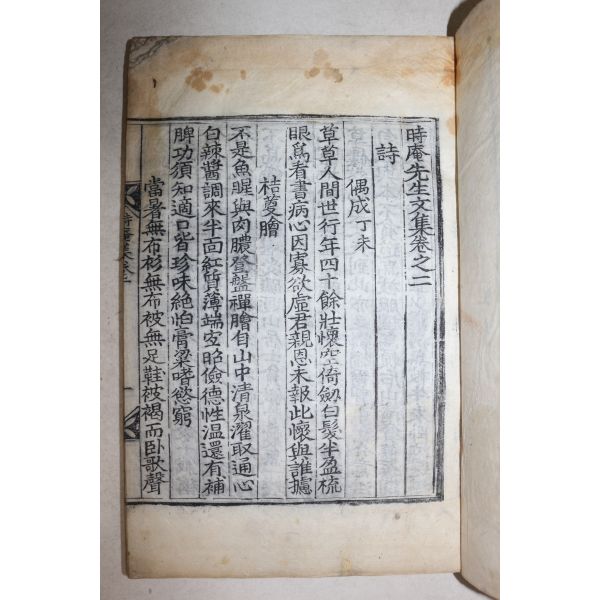 時庵先生文集卷之二
詩
偶成丁未
草草人間世行年四十餘壯懷空倚劒白髮半盈梳
眼爲看書病心因寡欲虛君親恩未報此懷與誰攄
桔蔓膾
不是魚腥與肉膿登盤禪膾自山中淸泉濯取通心
白辣醬調來半面紅質薄端宜昭儉德性溫還有補
脾功須知適口皆珍味絶怕膏粱嗜慾窮
當暑無布衫無布被無足鞋被褐而臥歌聲